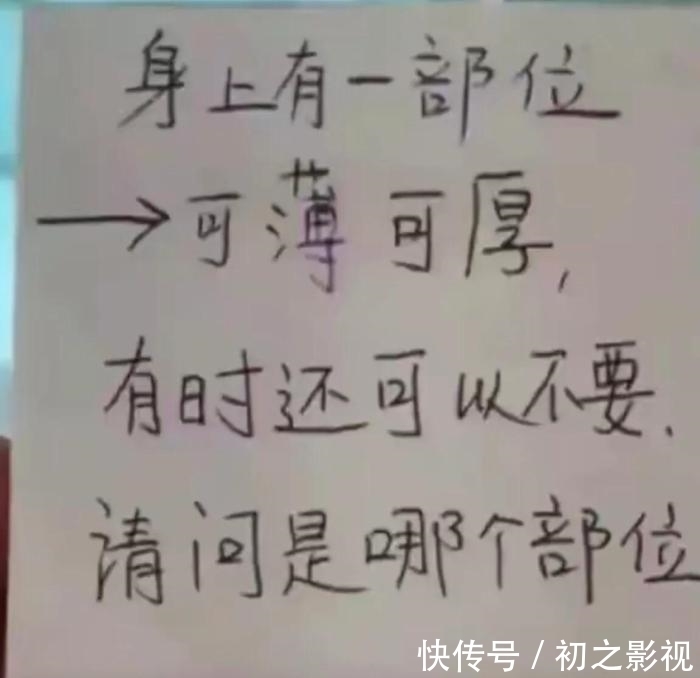 身上有一部位
→可薄可厚,
有时还可以不要.
请问是哪个部位
快传号 / 初之影视